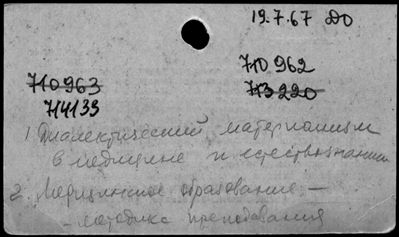 19.7.67 ДО
710962
710963
713220
714133
1. Диалектический материализм
в медицине и естествознании
2. Медицинское образование –
– методика преподавания